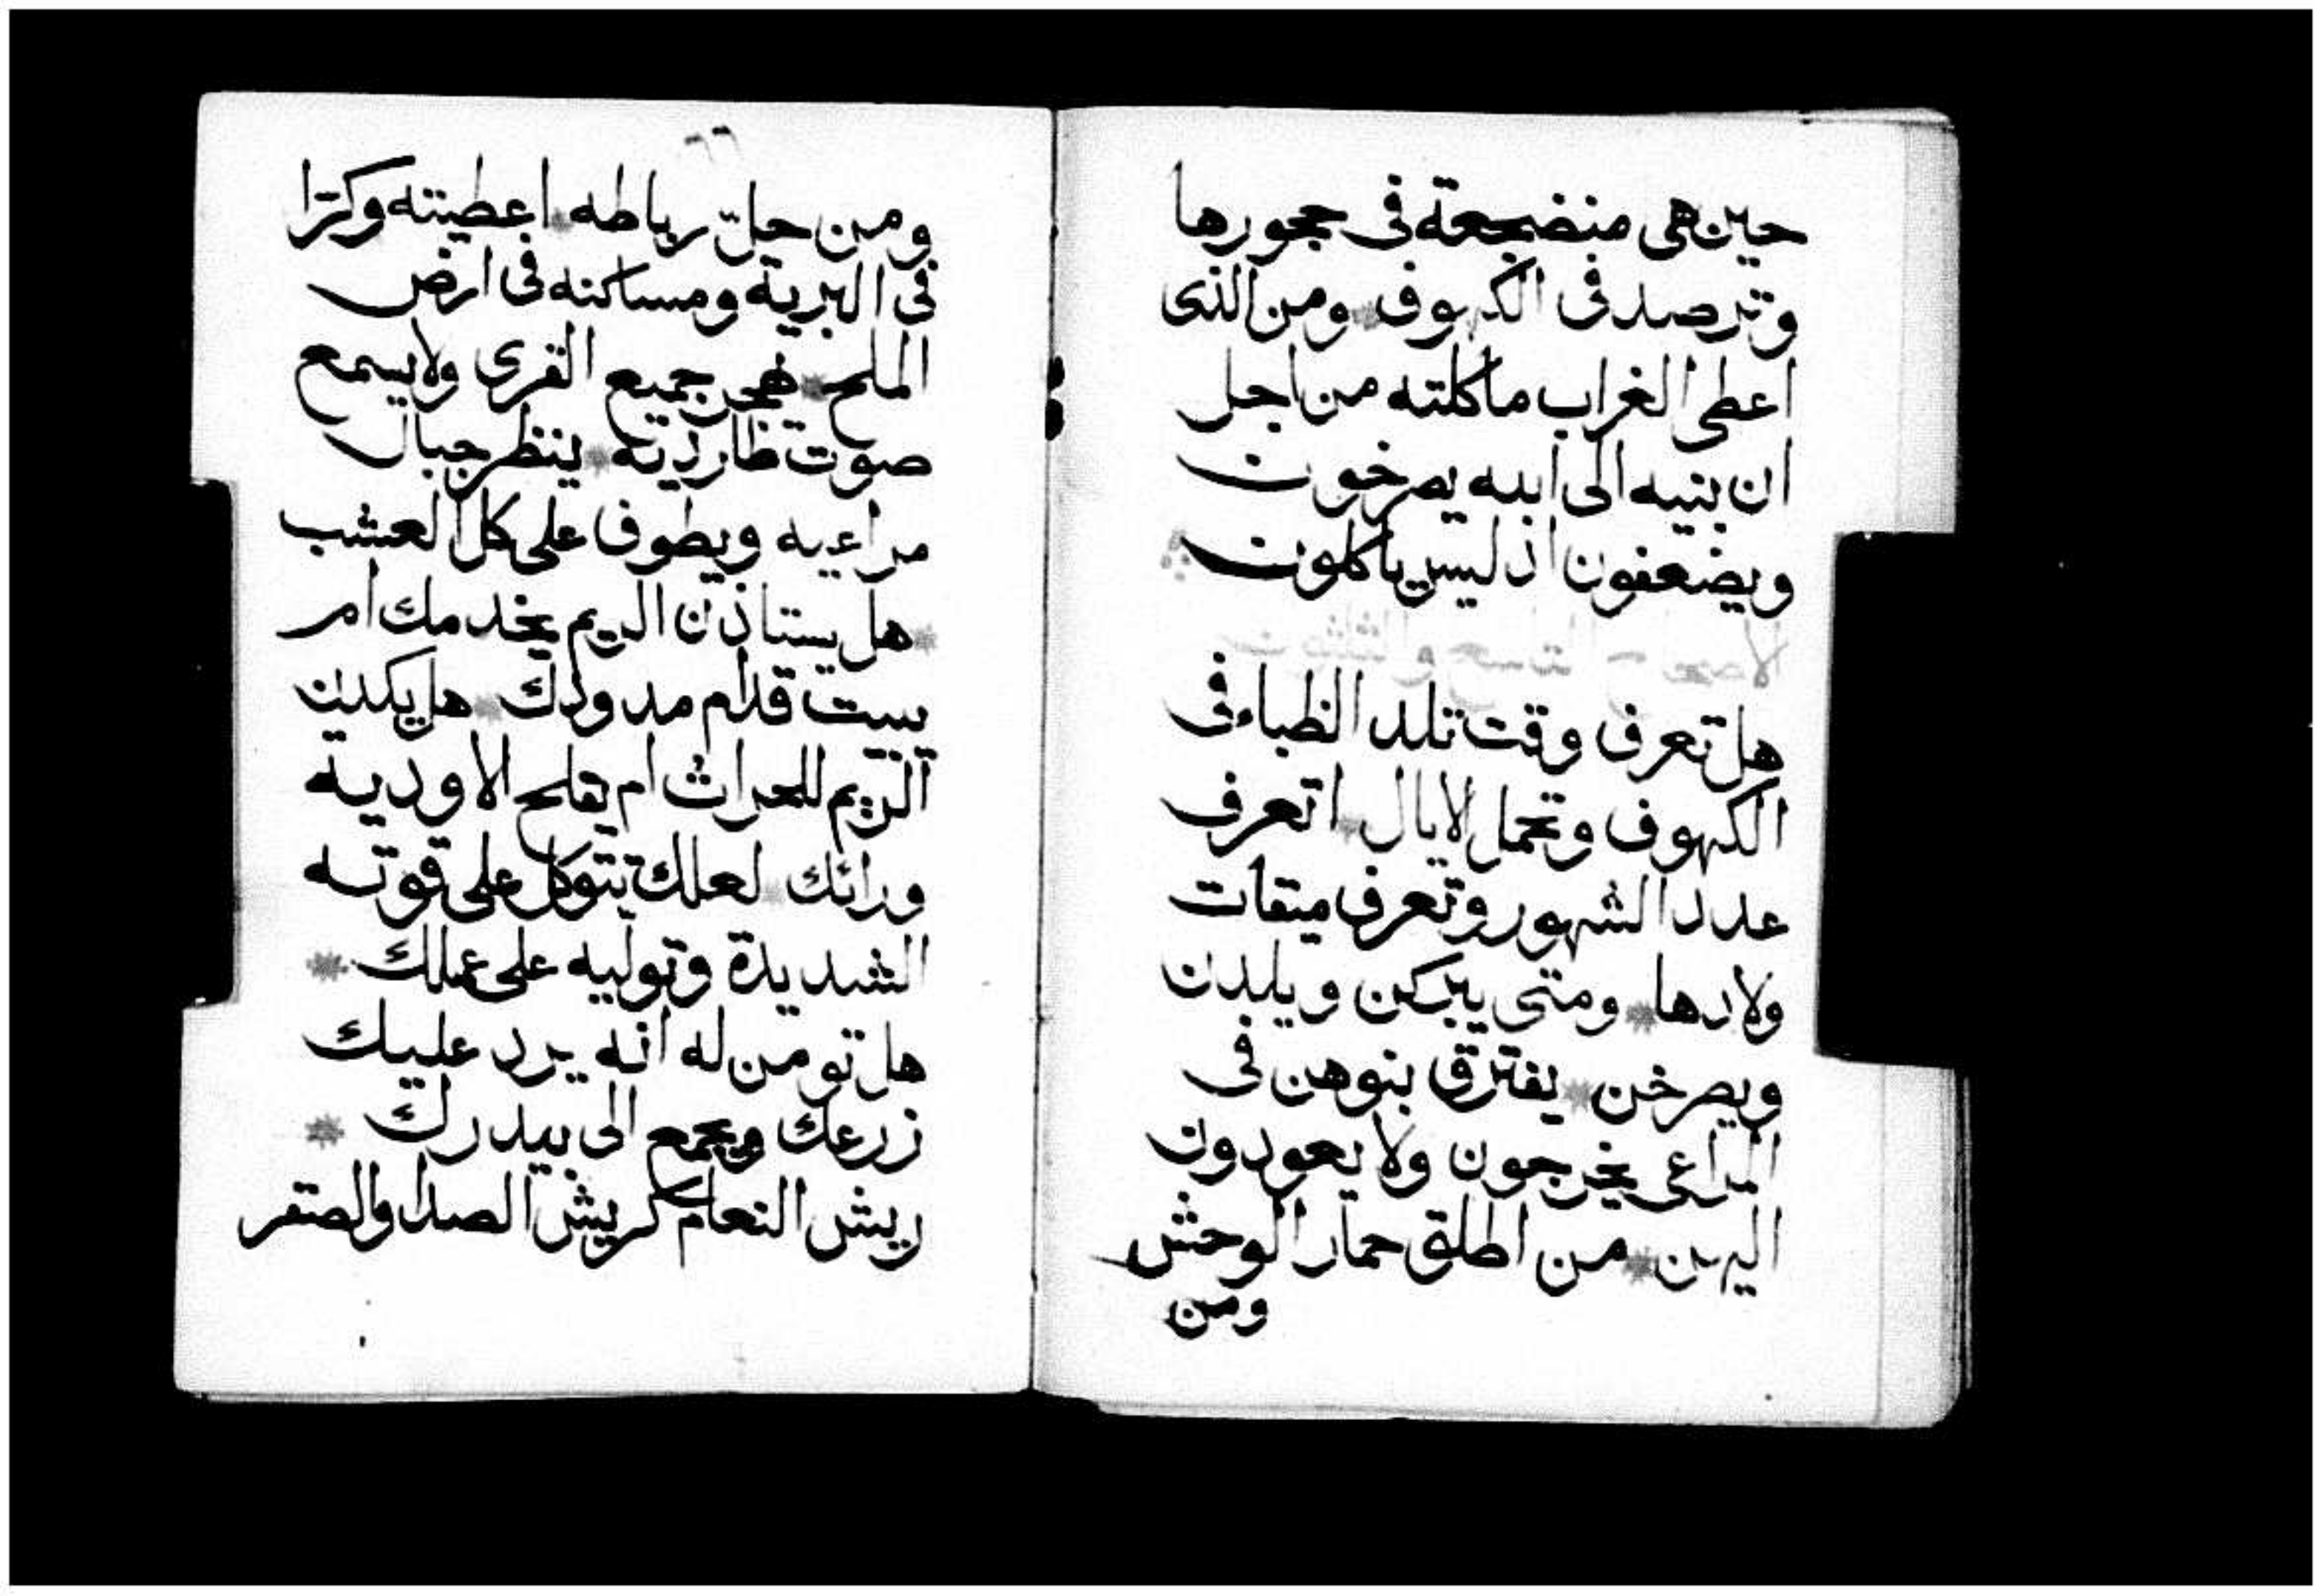 حين هي منضجعة في حجورها
وترصد في الكهوف ومن الذى
اعطى الغراب ماكلته من اجل
ان بنيه الى ابيه يصرخون
ويضعفون اذ ليس ياكلون
هل تعرف وقت تلد الظباء في
الكهوف وتحمل الايال اتعرف
عدد الشهور وتعرف ميقات
ولادها ومتى يبركن ويلدن
ويصرخن يفترق بنوهن في
المراعى يخرجون ولا يعودون
اليهن من اطلق حمار الوحش
ومن
٦٦
ومن حل رباطه اعطيته وكرا
في البرية ومساكنه في ارض
الملح فهجر جميع القرى ولا يسمع
صوت طارديه ينظر جبال
مراعيه ويطوف على كل العشب
هل يستاذن الريم يخدمك ام
يبيت قدام مدودك هل يكدن
الريم للحراث ام يفلح الاودية
ورائك لعلك تتوكل على قوته
الشديدة وتوليه على عملك
هل تومن له انه يرد عليك
زرعك ويجمع الى بيدرك
ريش النعام كريش الصدا والصقر